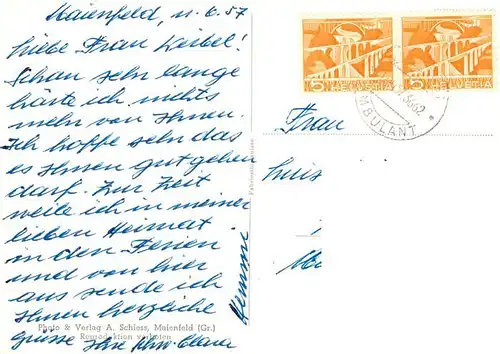 Maienfeld, 11. 6. 57
Liebe Frau Keibel!
Schon sehr lange
hörte ich nichts
mehr von Ihnen.
Ich hoffe sehr das
es Ihnen gut gehen
darf. Zur Zeit
weile ich in meiner
lieben Heimat
in den Ferien
und von hier
aus sende ich
Ihnen herzliche
Grüsse Ihre
Photo & Verlag A. Schloss, Maienfeld (Gr.)
Reproduktion verboten
5 HELVETIA
5 HELVETIA
AMBULANT
Frau
Luis